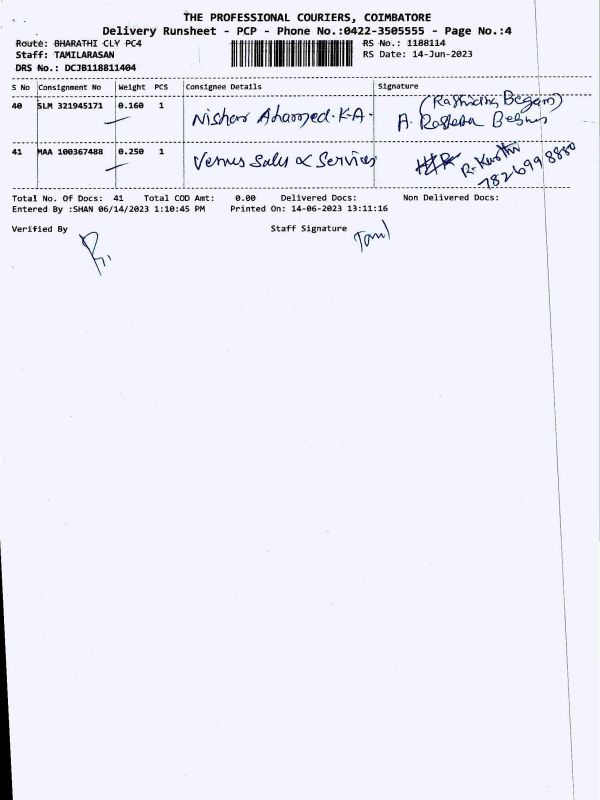 THE PROFESSIONAL COURIERS, COIMBATORE
Delivery Runsheet - PCP - Phone No.:0422-3505555 - Page No.:4
Route: BHARATHI CLY PC4 RS No.: 1188114
Staff: TAMILARASAN RS Date: 14-Jun-2023
DRS No.: DCJB118811404
S No Consignment No Weight PCS Consignee Details Signature
(Rashidha Begam)
40 SLM 321945171 0.160 1 Nishar Ahamed.K.A. A. Begum
41 MAA 100367488 0.250 1 Venus Sales & Services R. Kurthi
7826998880
Total No. Of Docs: 41 Total COD Amt: 0.00 Delivered Docs: Non Delivered Docs:
Entered By :SHAN 06/14/2023 1:10:45 PM Printed On: 14-06-2023 13:11:16
Verified By Staff Signature Taml